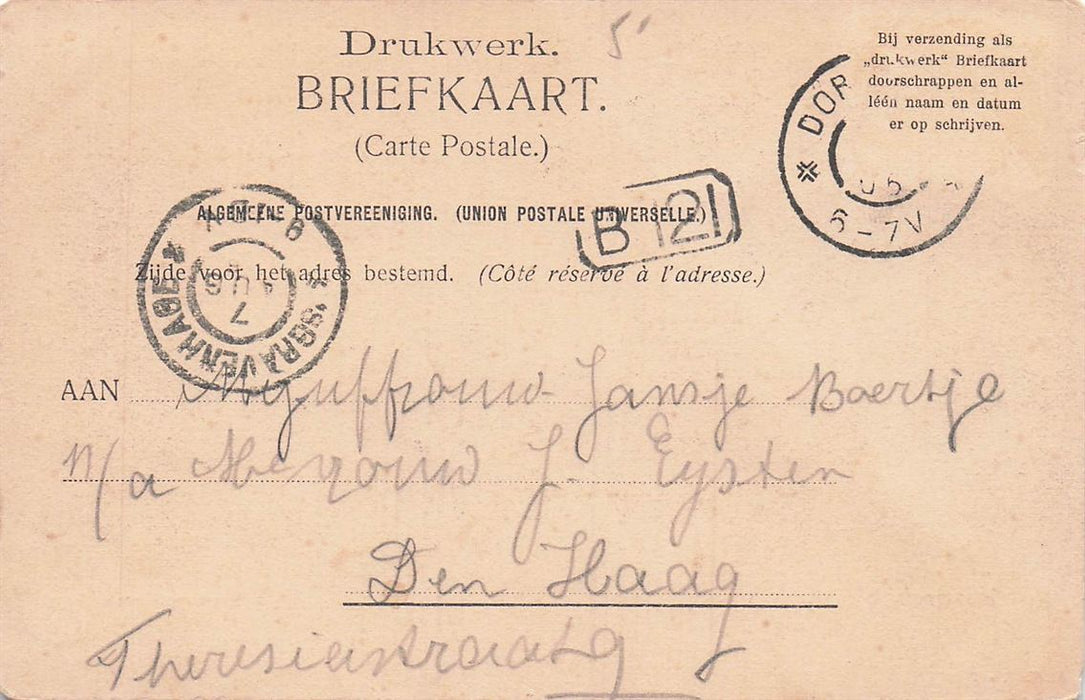 Drukwerk. 5
BRIEFKAART.
(Carte Postale.)
Bij verzending als
„drukwerk“ Briefkaart
doorschrappen en al-
léén naam en datum
er op schrijven.
DOR
6-7V
B 121
ALGEMEENE POSTVEREENIGING. (UNION POSTALE UNIVERSELLE.)
Zijde voor het adres bestemd. (Côté réservé à l'adresse.)
'SGRAVENHAGE
7
AAN Mejuffrouw Jansje Baertje
p/a Mevrouw J. Eysten
Den Haag
Theresiastraat 9